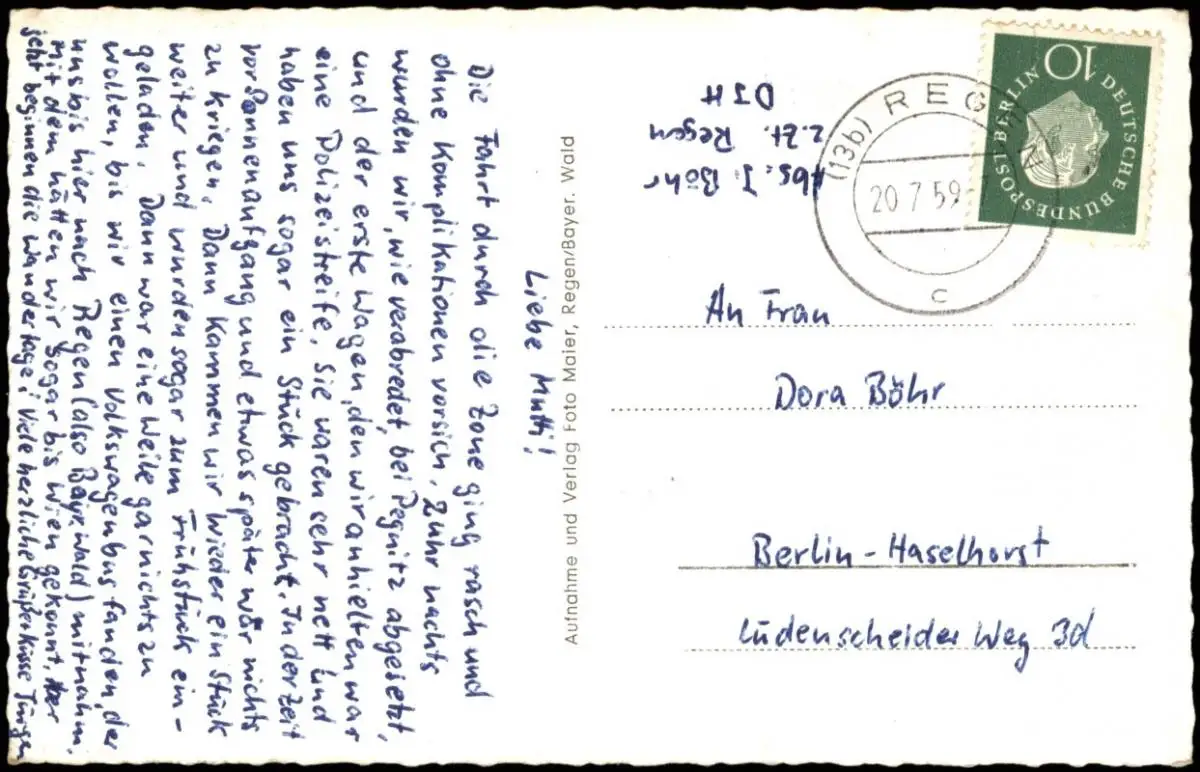 Liebe Mutti!
Die Fahrt durch die Zone ging rasch und
ohne Komplikationen vorsich. 2 uhr nachts
wurden wir, wie verabredet, bei Pegnitz abgesetzt,
und der erste Wagen, den wir anhielten war
eine Polizeistreife. Sie waren sehr nett und
haben uns sogar ein Stück gebracht. In der Zeit
vor Sonnenaufgang und etwas später war nichts
zu kriegen. Dann kammen wir wieder ein Stück
weiter und wurden sogar zum Frühstück ein-
geladen. Dann war eine Weile garnichts zu
wollen, bis wir einen Volkswagenbus fanden, der
uns bis hier nach Regen (also Bayr. Wald) mitnahm,
mit dem hätten wir sogar bis Wien gekonnt, aber
jetzt beginnen die Wandertage! Viele herzliche Grüße Küsse Jürgen
Aufnahme und Verlag Foto Maier, Regen/Bayer. Wald
Abs. J. Böhr
z.Zt. Regen
DJH
(13b) REGEN
20.7.59
c
10
DEUTSCHE BUNDESPOST BERLIN
An Frau
Dora Böhr
Berlin-Haselhorst
Lüdenscheider Weg 3d